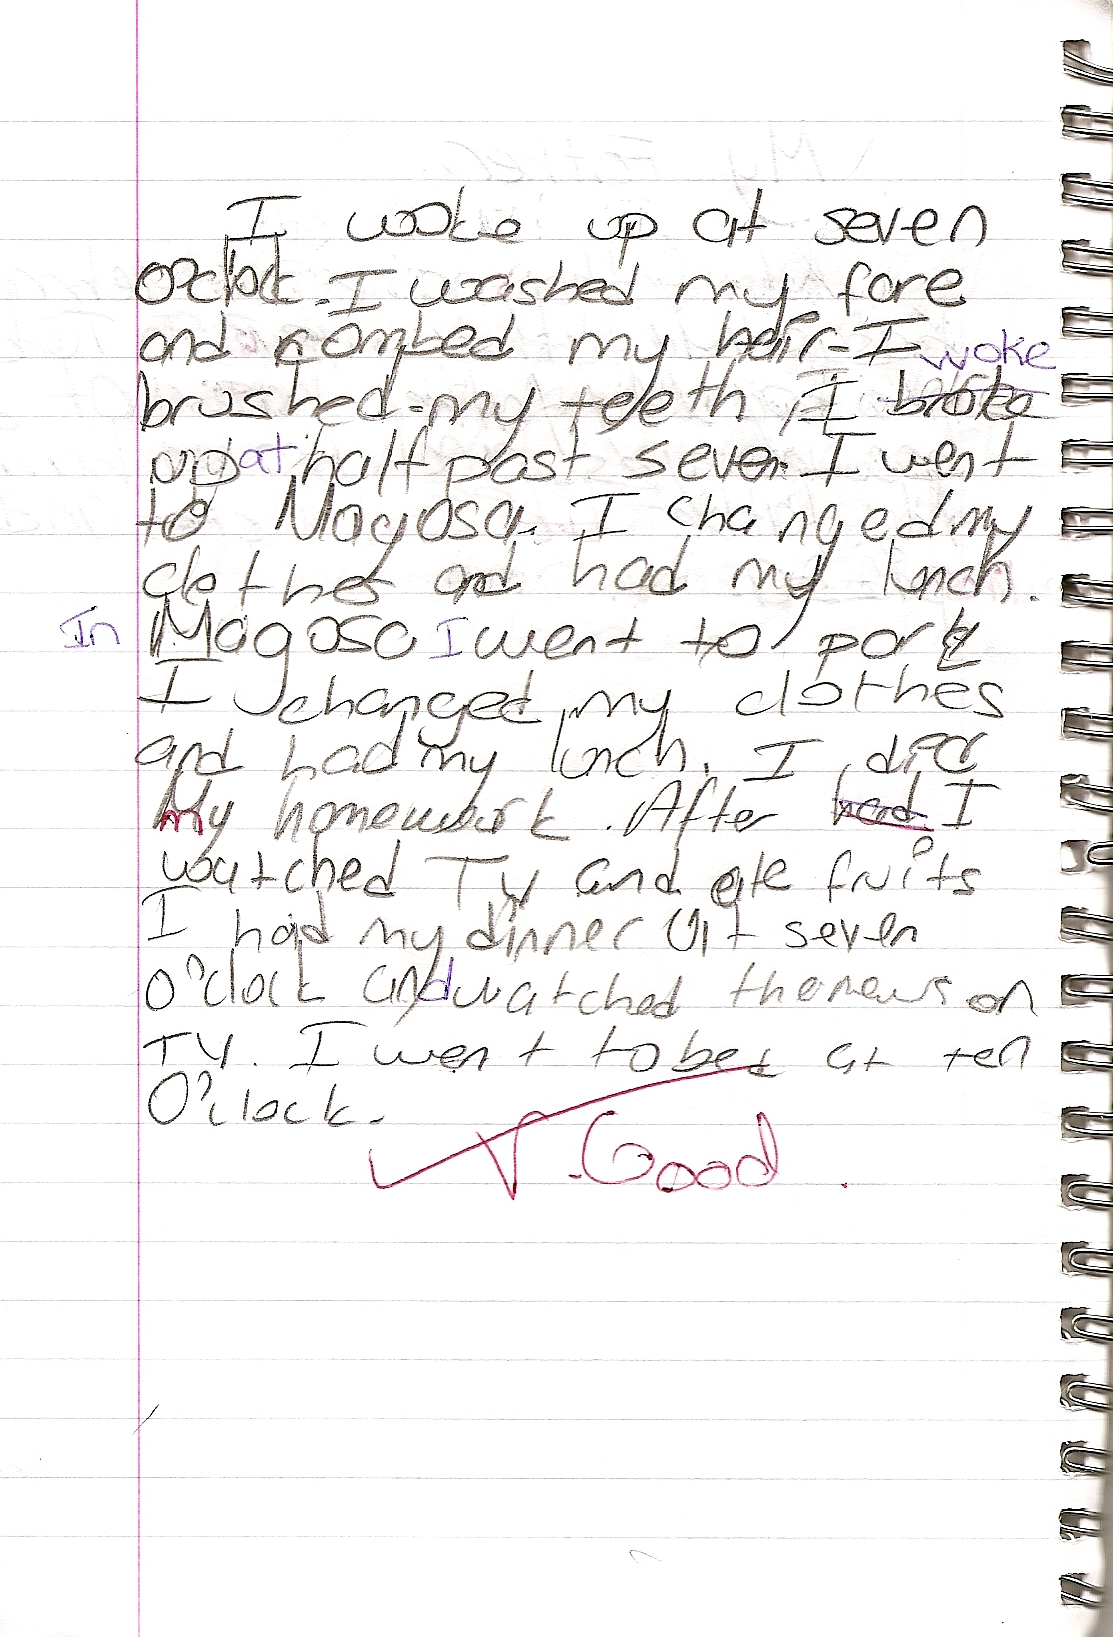 I woke up at seven
O'clock. I washed my fore
and combed my hair. I woke
brushed my teeth, I broke
up at half past seven I went
to Magosa. I changed my
clothes and had my lunch.
In Magosa I went to park
I changed my clothes
and had my lunch. I did
My homework. After had I
watched TV and ate fruits
I had my dinner at seven
o'clock and watched the news on
TV. I went to bed at ten
O'clock.
Good.